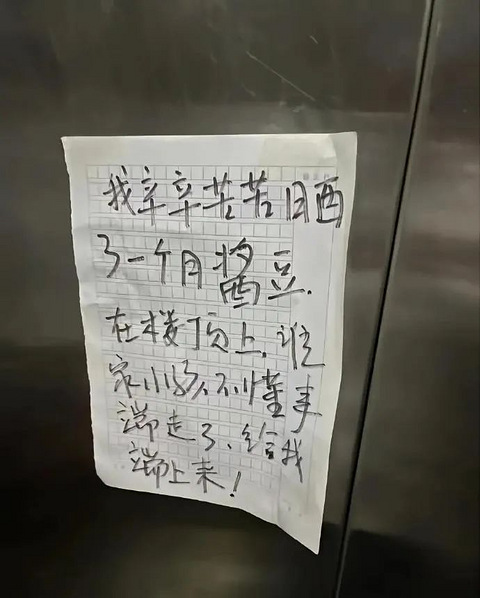 我辛辛苦苦晒
了一个月酱豆.
在楼顶上,谁
家小孩不懂事
端走了、给我
端上来!